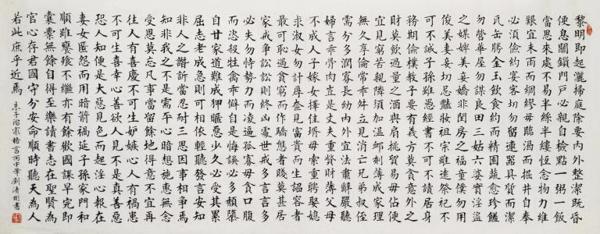 黎明即起灑掃庭除要內外整潔既昏
便息關鎖門戶必親自檢點一粥一飯
當思來處不易半絲半縷恆念物力維
艱宜未雨而綢繆毋臨渴而掘井自奉
必須儉約宴客切勿留連器具質而潔
瓦缶勝金玉飲食約而精園蔬愈珍饈
勿營華屋勿謀良田三姑六婆實淫盜
之媒婢美妾嬌非閨房之福童僕勿用
俊美妻妾切忌豔妝祖宗雖遠祭祀不
可不誠子孫雖愚經書不可不讀居身
務期儉樸教子要有義方莫貪意外之
財莫飲過量之酒與肩挑貿易毋佔便
宜見窮苦親鄰須加溫卹刻薄成家理
無久享倫常乖舛立見消亡兄弟叔侄
需分多潤寡長幼內外宜法肅辭嚴聽
婦言乖骨肉豈是丈夫重資財薄父母
不成人子嫁女擇佳婿毋索重聘娶媳
求淑女勿計厚奩見富貴而生諂容者
最可恥遇貧窮而作驕態者賤莫甚居
家戒爭訟訟則終凶處世戒多言言多
必失勿恃勢力而凌逼孤寡毋貪口腹
而恣殺牲禽乖僻自是悔誤必多頹惰
自甘家道難成狎暱惡少久必受其累
屈志老成急則可相依輕聽發言安知
非人之譖訴當忍耐三思因事相爭焉
知非我之不是須平心暗想施惠無念
受恩莫忘凡事當留餘地得意不宜再
往人有喜慶不可生妒嫉心人有禍患
不可生喜幸心善欲人見不是真善惡
恐人知便是大惡見色而起淫心報在
妻女匿怨而用暗箭禍延子孫家門和
順雖饔飧不繼亦有餘歡國課早完即
囊橐無餘自得至樂讀書志在聖賢為
官心存君國守分安命順時聽天為人
若此庶乎近焉 朱子治家格言